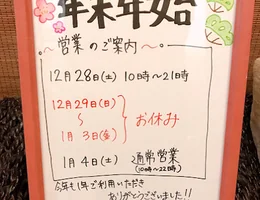 年末年始
～営業のご案内～
12月28日(土) 10時～21時
12月29日(日)
～ お休み
1月3日(金)
1月4日(土) 通常営業
(10時～22時)
今年も1年ご利用いただき
ありがとうございました!!